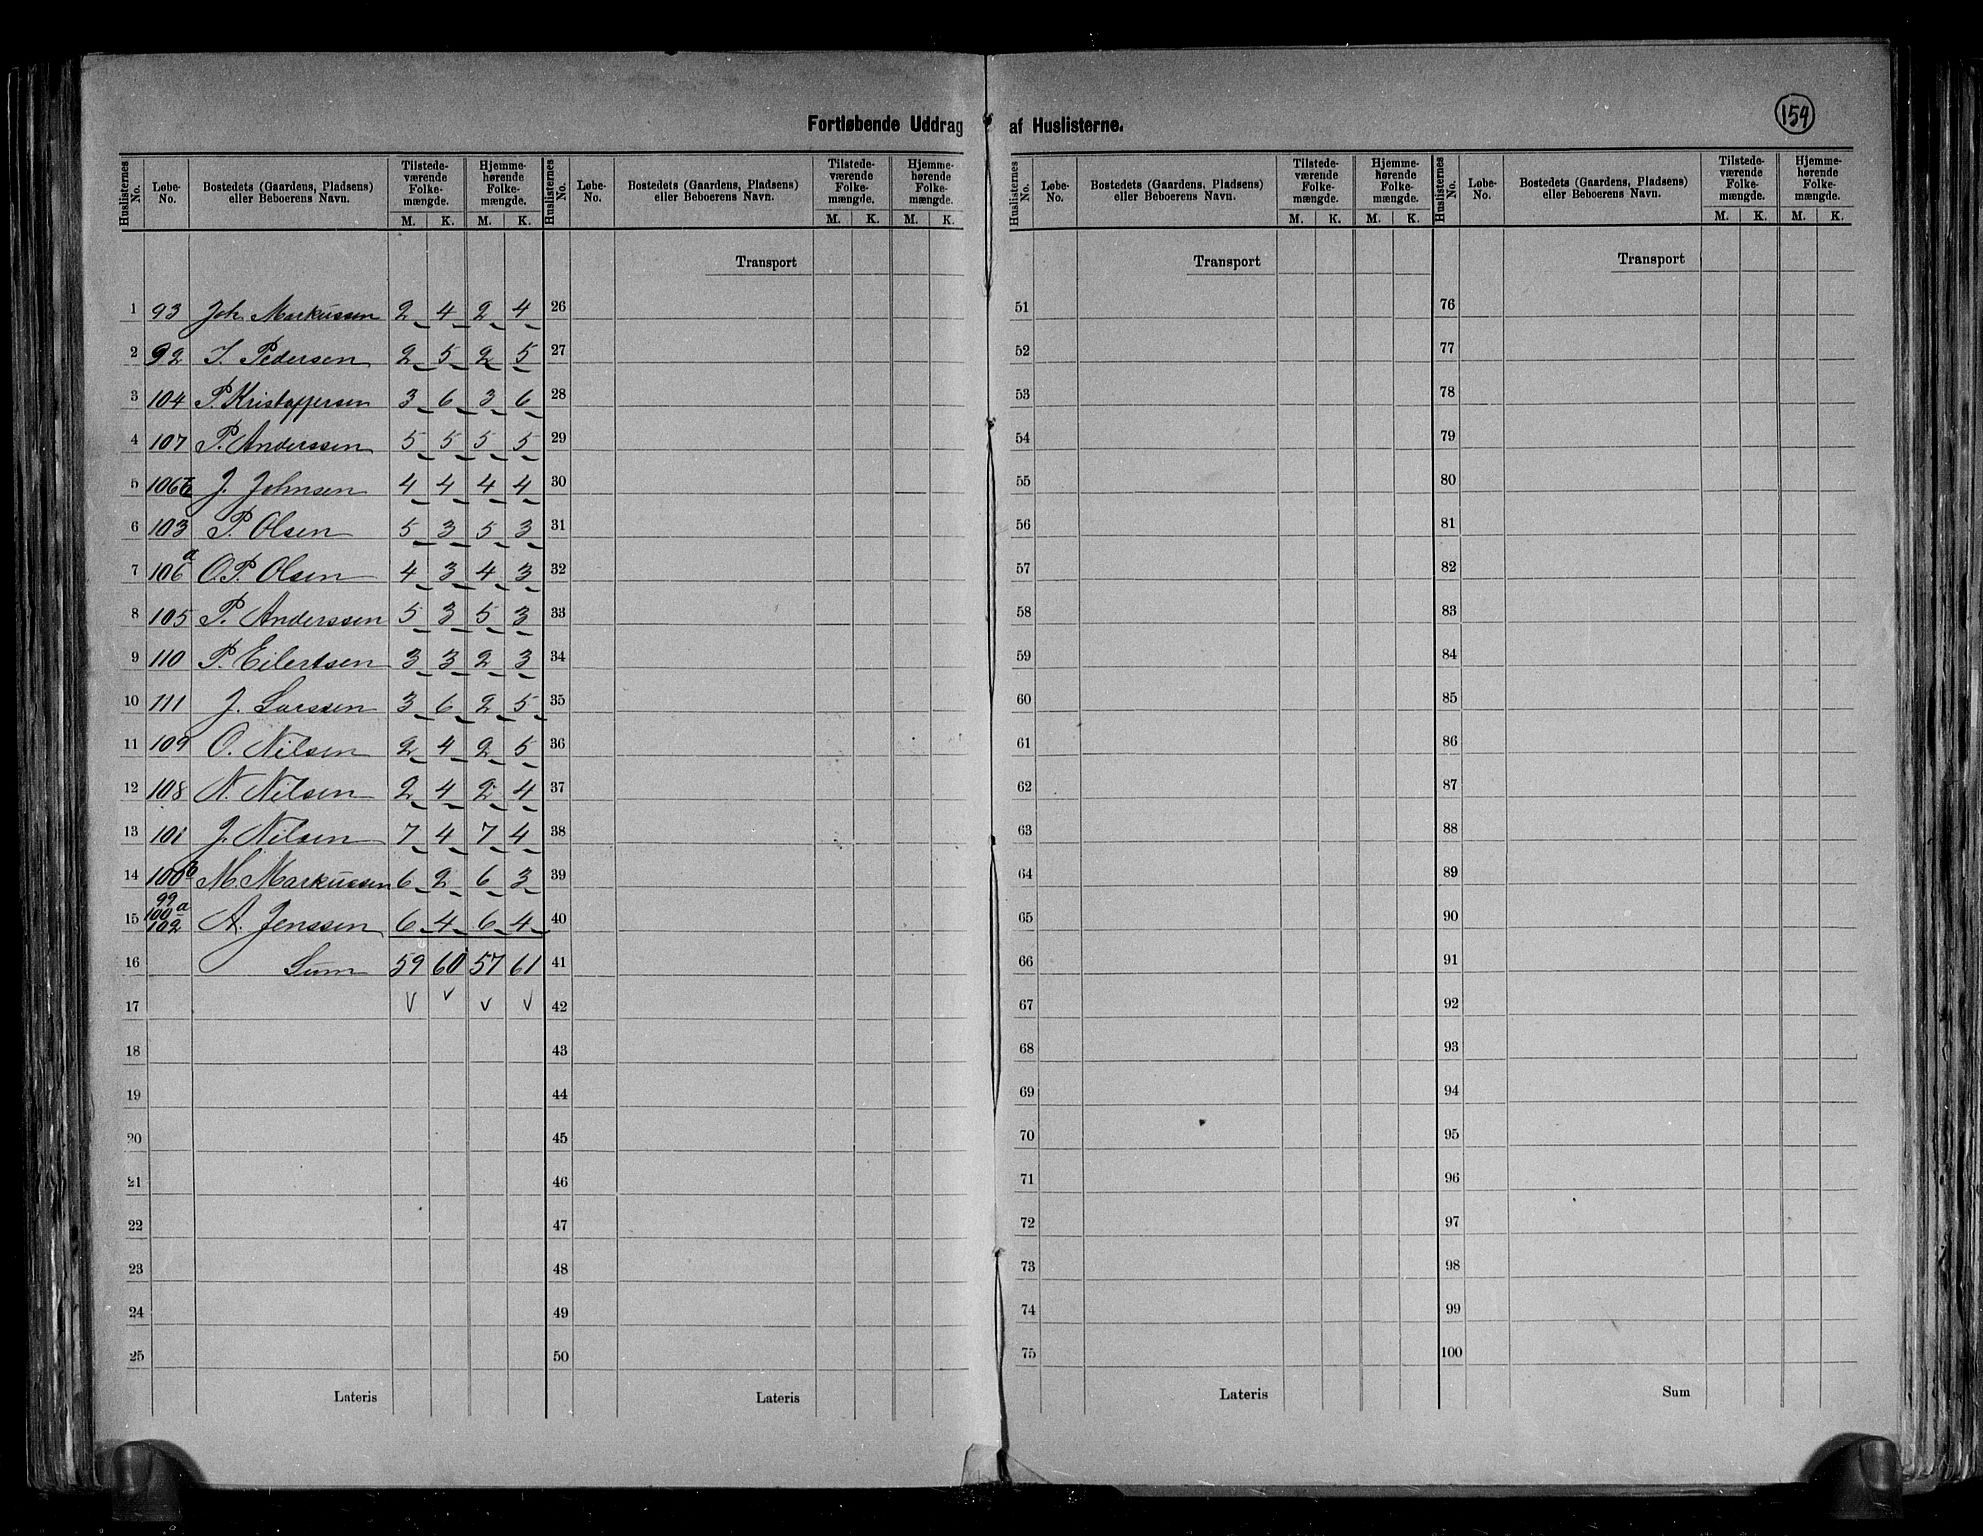 Fortløbende Uddrag af Huslisterne.
159
Huslisternes No. Løbe-No. Bostedets (Gaardens, Pladsens) eller Beboerens Navn. Tilstedeværende Folkemængde. M. K. Hjemmehørende Folkemængde. M. K.
1 93 Joh. Markussen 2 4 2 4
2 92 I. Pedersen 2 5 2 5
3 104 P. Kristoffersen 3 6 3 6
4 107 P. Anderssen 5 5 5 5
5 106b J. Johnsen 4 4 4 4
6 103 P. Olsen 5 3 5 3
7 106a O.P. Olsen 4 3 4 3
8 105 P. Anderssen 5 3 5 3
9 110 P. Eilertsen 3 3 2 3
10 111 J. Larssen 3 6 2 5
11 109 O. Nilsen 2 4 2 5
12 108 N. Nilsen 2 4 2 4
13 101 J. Nilsen 7 4 7 4
14 100b M. Markussen 6 2 6 3
15 99 100a 102 A. Jenssen 6 4 6 4
16 Sum 59 60 57 61
17
18
19
20
21
22
23
24
25
Lateris
Huslisternes No. Løbe-No. Bostedets (Gaardens, Pladsens) eller Beboerens Navn. Tilstedeværende Folkemængde. M. K. Hjemmehørende Folkemængde. M. K.
Transport
26
27
28
29
30
31
32
33
34
35
36
37
38
39
40
41
42
43
44
45
46
47
48
49
50
Lateris
Huslisternes No. Løbe-No. Bostedets (Gaardens, Pladsens) eller Beboerens Navn. Tilstedeværende Folkemængde. M. K. Hjemmehørende Folkemængde. M. K.
Transport
51
52
53
54
55
56
57
58
59
60
61
62
63
64
65
66
67
68
69
70
71
72
73
74
75
Lateris
Huslisternes No. Løbe-No. Bostedets (Gaardens, Pladsens) eller Beboerens Navn. Tilstedeværende Folkemængde. M. K. Hjemmehørende Folkemængde. M. K.
Transport
76
77
78
79
80
81
82
83
84
85
86
87
88
89
90
91
92
93
94
95
96
97
98
99
100
Sum